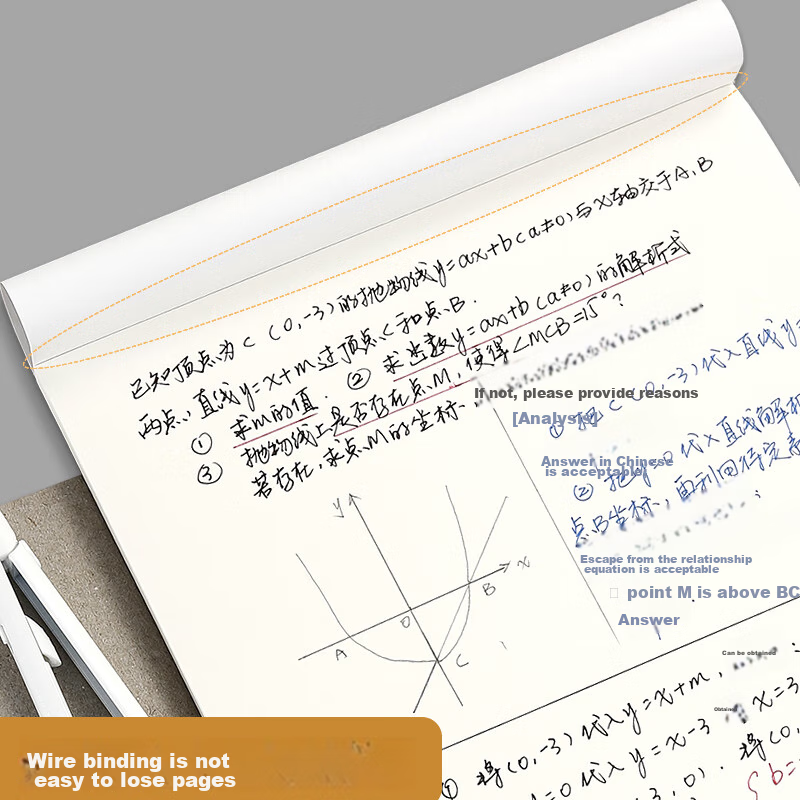 已知顶点为C(0,-3)的抛物线y=ax+b(a≠0)与x轴交于A、B
两点, 直线y=x+m过顶点C和点B.
① 求m的值. ② 求函数y=ax+b(a≠0)的解析式
③ 抛物线上是否存在点M, 使得∠MCB=15°?
若存在, 求点M的坐标.
If not, please provide reasons
[Analysis]
① 把C(0,-3)代入直线y=
Answer in Chinese
is acceptable
② 把y=0代入直线解析
点B坐标,再利用待定系
Escape from the relationship
equation is acceptable
point M is above BC
Answer
y
x
O
A
B
C
Can be obtained
① 将(0,-3)代入y=x+m,
Obtained
=0代入y=x-3 x=3
3,0). 将(0,
b=
Wire binding is not
easy to lose pages